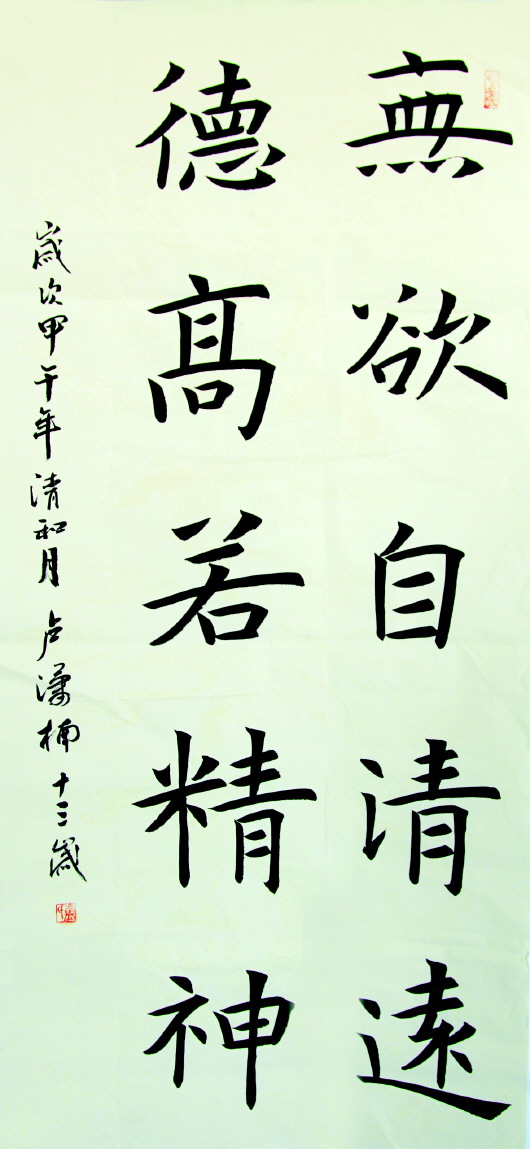 無欲自清遠
德高若精神
歲次甲午年清和月卢潇楠十三歲